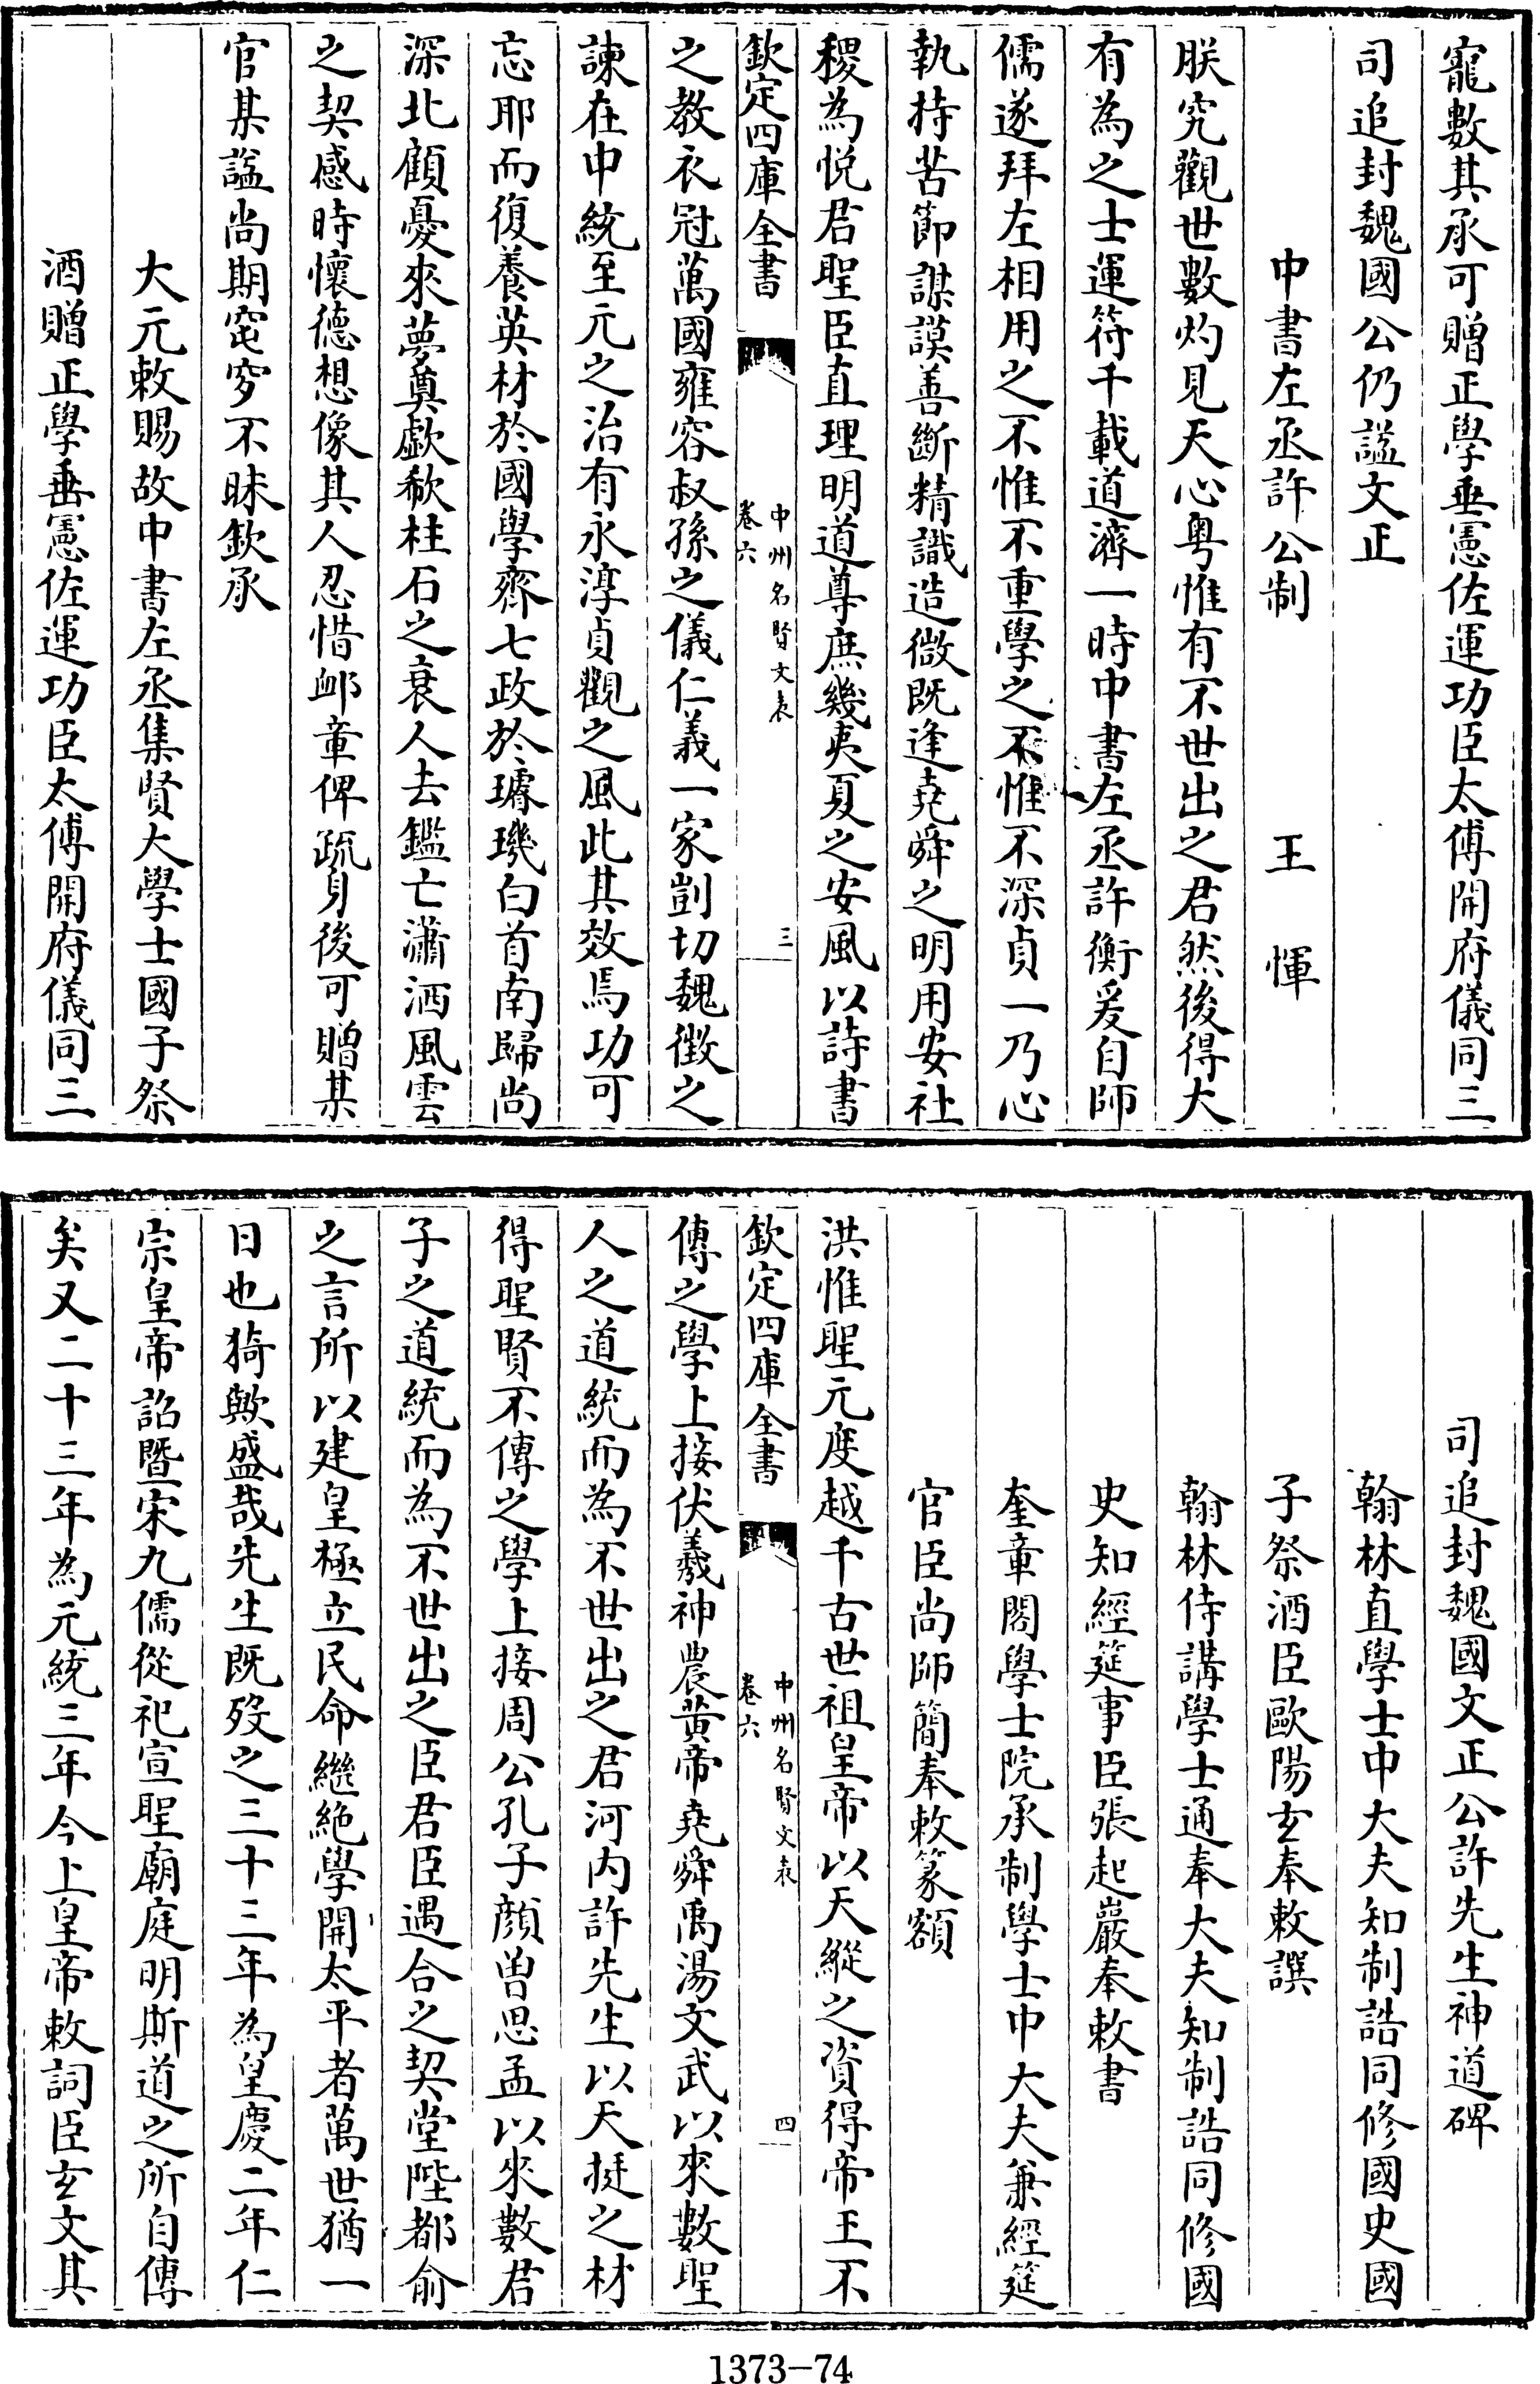 寵數其承可贈正學垂憲佐運功臣太傅開府儀同三
司追封魏國公仍諡文正
中書左丞許公制 王惲
朕究觀世數灼見天心粤惟有不世出之君然後得大
有為之士運符千載道濟一時中書左丞許衡爰自師
儒遂拜左相用之不惟不重學之不惟不深貞一乃心
執持苦節謀謨善斷精識造微既逢堯舜之明用安社
稷為悦君聖臣直理明道尊庶幾夷夏之安風以詩書
欽定四庫全書
中州名賢文表
卷六
三
之教衣冠萬國雍容叔孫之儀仁義一家剴切魏徴之
諫在中統至元之治有永淳貞觀之風此其效焉功可
忘耶而復養英材於國學齊七政於璿璣白首南歸尚
深北顧憂來夢奠歔欷柱石之衰人去鑑亡瀟洒風雲
之契感時懷德想像其人忍惜䘏章俾疏身後可贈某
官某諡尚期窀穸不昧欽承
大元敕賜故中書左丞集賢大學士國子祭
酒贈正學垂憲佐運功臣太傅開府儀同三
司追封魏國文正公許先生神道碑
翰林直學士中大夫知制誥同修國史國
子祭酒臣歐陽玄奉敕譔
翰林侍講學士通奉大夫知制誥同修國
史知經筵事臣張起巖奉敕書
奎章閣學士院承制學士中大夫兼經筵
官臣尚師簡奉敕篆額
洪惟聖元度越千古世祖皇帝以天縱之資得帝王不
欽定四庫全書
中州名賢文表
卷六
四
傳之學上接伏羲神農黄帝堯舜禹湯文武以來數聖
人之道統而為不世出之君河内許先生以天挺之材
得聖賢不傳之學上接周公孔子顔曽思孟以來數君
子之道統而為不世出之臣君臣遇合之契堂陛都俞
之言所以建皇極立民命繼絶學開太平者萬世猶一
日也猗歟盛哉先生既歿之三十三年為皇慶二年仁
宗皇帝詔暨宋九儒從祀宣聖廟庭明斯道之所自傳
矣又二十三年為元統三年今上皇帝敕詞臣玄文其
1373-74